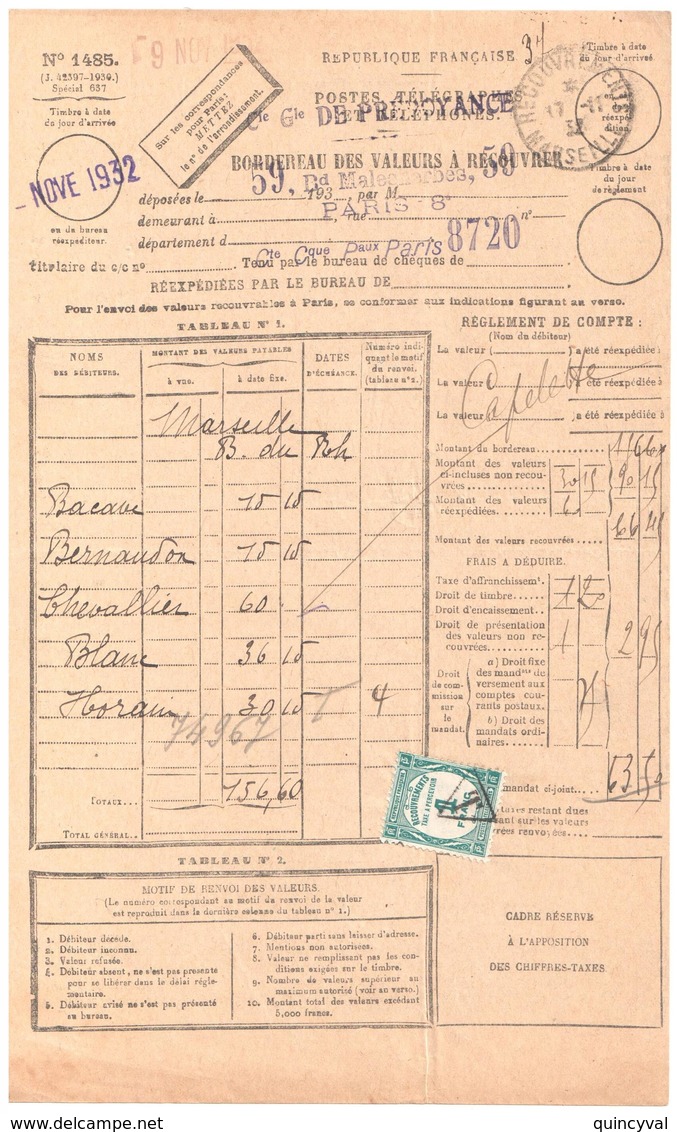 Nº 1485.
(J. 42397-1930.)
Spécial 637
9 NOV
Timbre à date
du jour d'arrivée
NOVE 1932
en du bureau
réexpéditeur.
Sur les correspondances
pour Paris:
METTEZ
le nº de l'arrondissement.
RÉPUBLIQUE FRANÇAISE
POSTES, TÉLÉGRAPHES
ET TÉLÉPHONES.
Cie Gle DE PREVOYANCE
BORDEREAU DES VALEURS À RECOUVRER
59, Bd Malesherbes, 59
PARIS-8e
déposées le 193 , par M
demeurant à , rue nº
département d
Cte Cque Paux Paris 8720
titulaire du c/c nº Tenu par le bureau de chèques de
RÉEXPÉDIÉES PAR LE BUREAU DE
Timbre à date
du jour d'arrivée
RECOUVREMENTS
17 -11
32
MARSEILLE
en
de
réexpé-
dition
Timbre à date
du jour
de règlement
Pour l'envoi des valeurs recouvrables à Paris, se conformer aux indications figurant au verso.
TABLEAU Nº 1.
NOMS
DES DÉBITEURS.
MONTANT DES VALEURS PAYABLES
à vue.
à date fixe.
DATES
D'ÉCHÉANCE.
Numéro indi-
quant le motif
du renvoi.
(tableau nº 2.)
Marseille
B. du Rh
Bacave 15 15
Bernaudon 15 15
Chevallier 60
Blanc 36 15
Horain 30 15 4
74967
TOTAUX... 156,60
TOTAL GÉNÉRAL..
RÈGLEMENT DE COMPTE :
(Nom du débiteur)
La valeur ( ) a été réexpédiée à
La valeur ( ) a été réexpédiée à
La valeur ( ) a été réexpédiée à
Capelette
Montant du bordereau
Montant des valeurs
ci-incluses non recou-
vrées 30 15 90 15
Montant des valeurs
réexpédiées. 60
Montant des valeurs recouvrées 66 45
FRAIS A DÉDUIRE.
Taxe d'affranchissemt.
Droit de timbre
Droit d'encaissement
Droit de présentation
des valeurs non re-
couvrées 1 2 95
Droit
de com-
mission
sur
le
mandat.
a) Droit fixe
des mandats de
versement aux
comptes cou-
rants postaux.
b) Droit des
mandats ordi-
naires
mandat ci-joint 63 50
taxes restant dues
sant sur les valeurs
uvrées renvoyées
RECOUVREMENTS
TAXE A PERCEVOIR
1
FRANC
TABLEAU Nº 2.
MOTIF DE RENVOI DES VALEURS.
(Le numéro correspondant au motif du renvoi de la valeur
est reproduit dans la dernière colonne du tableau nº 1.)
1. Débiteur décédé.
2. Débiteur inconnu.
3. Valeur refusée.
4. Débiteur absent, ne s'est pas présenté
pour se libérer dans le délai régle-
mentaire.
5. Débiteur avisé ne s'est pas présenté
au bureau.
6. Débiteur parti sans laisser d'adresse.
7. Mentions non autorisées.
8. Valeur ne remplissant pas les con-
ditions exigées sur le timbre.
9. Nombre de valeurs supérieur au
maximum autorisé (voir au verso.)
10. Montant total des valeurs excédant
5,000 francs.
CADRE RÉSERVÉ
À L'APPOSITION
DES CHIFFRES-TAXES
quincyval